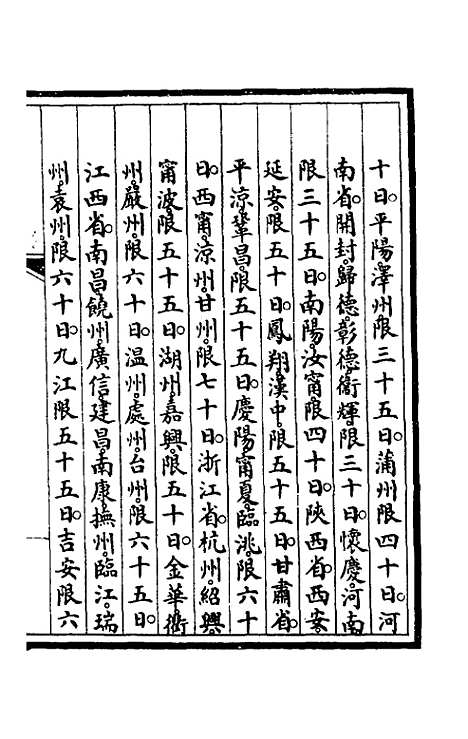 十日。平陽。澤州。限三十五日。蒲州限四十日。河
南省。開封。歸德。彰德。衞輝。限三十日。懷慶。河南
限三十五日。南陽。汝甯。限四十日。陝西省。西安。
延安。限五十日。鳳翔。漢中。限五十五日。甘肅省。
平涼。鞏昌。限五十五日。慶陽。甯夏。臨洮。限六十
日。西甯。涼州。甘州。限七十日。浙江省。杭州。紹興。
甯波。限五十五日。湖州。嘉興。限五十日。金華。衢
州。嚴州。限六十日。温州。處州。台州。限六十五日。
江西省。南昌。饒州。廣信。建昌。南康。撫州。臨江。瑞
州。袁州。限六十日。九江限五十五日。吉安限六